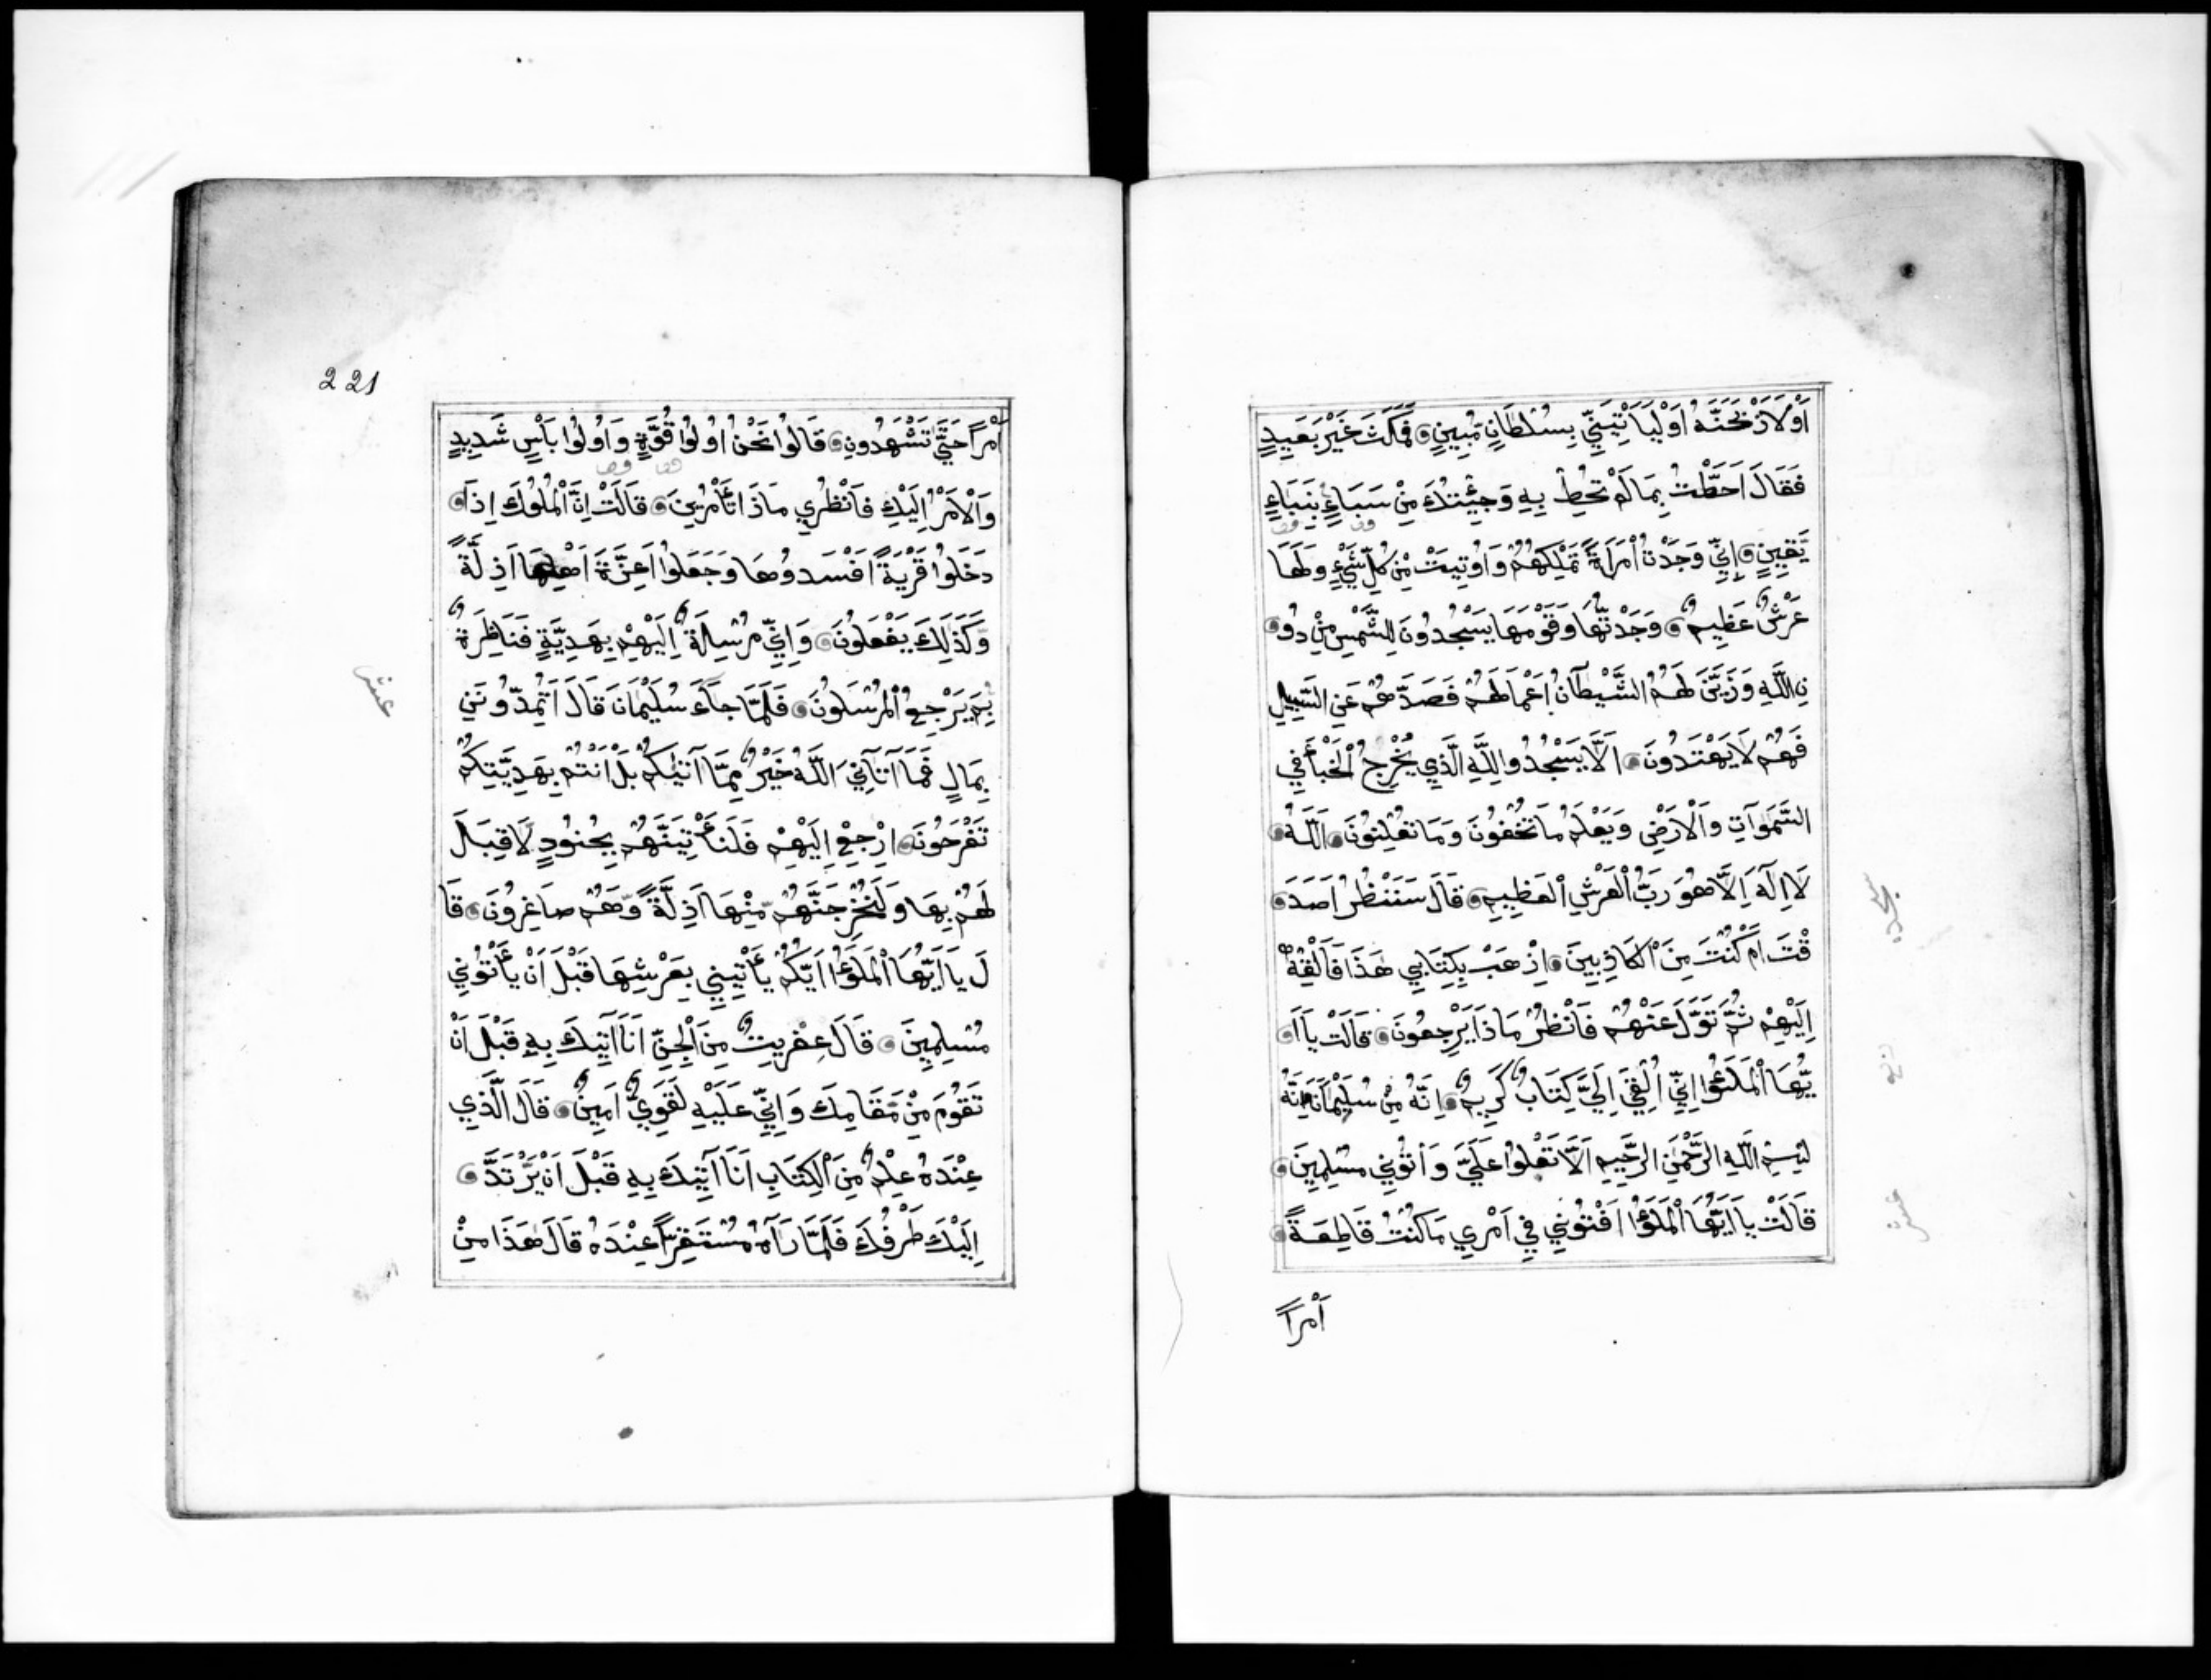 اَوْ لَاَذْبَحَنَّهُ اَوْ لَيَاْتِيَنِّي بِسُلْطَانٍ مُّبِينٍ فَمَكَثَ غَيْرَ بَعِيدٍ
فَقَالَ اَحَطْتُ بِمَا لَمْ تُحِطْ بِهِ وَجِئْتُكَ مِنْ سَبَاءٍ بِنَبَاءٍ
يَّقِينٍ اِنِّي وَجَدْتُ امْرَاَةً تَمْلِكُهُمْ وَاُوتِيَتْ مِنْ كُلِّ شَيْءٍ وَلَهَا
عَرْشٌ عَظِيمٌ وَجَدْتُّهَا وَقَوْمَهَا يَسْجُدُونَ لِلشَّمْسِ مِنْ دُو
نِ اللَّهِ وَزَيَّنَ لَهُمُ الشَّيْطَانُ اَعْمَالَهُمْ فَصَدَّهُمْ عَنِ السَّبِيلِ
فَهُمْ لَا يَهْتَدُونَ اَلَّا يَسْجُدُوا لِلَّهِ الَّذِي يُخْرِجُ الْخَبْأَ فِي
السَّمَوَاتِ وَالْاَرْضِ وَيَعْلَمُ مَا تُخْفُونَ وَمَا تُعْلِنُونَ اَللَّهُ
لَا اِلَهَ اِلَّا هُوَ رَبُّ الْعَرْشِ الْعَظِيمِ قَالَ سَنَنْظُرُ اَصَدَ
قْتَ اَمْ كُنْتَ مِنَ الْكَاذِبِينَ اِذْهَبْ بِكِتَابِي هَذَا فَاَلْقِهْ
اِلَيْهِمْ ثُمَّ تَوَلَّ عَنْهُمْ فَانْظُرْ مَاذَا يَرْجِعُونَ قَالَتْ يَا اَ
يُّهَا الْمَلَؤُا اِنِّي اُلْقِيَ اِلَيَّ كِتَابٌ كَرِيمٌ اِنَّهُ مِنْ سُلَيْمَانَ وَاِنَّهُ
بِسْمِ اللَّهِ الرَّحْمَنِ الرَّحِيمِ اَلَّا تَعْلُوا عَلَيَّ وَأْتُونِي مُسْلِمِينَ
قَالَتْ يَا اَيُّهَا الْمَلَؤُا اَفْتُونِي فِي اَمْرِي مَا كُنْتُ قَاطِعَةً
اَمْراً
221
اَمْراً حَتَّى تَشْهَدُونِ قَالُوا نَحْنُ اُولُوا قُوَّةٍ وَاُولُوا بَاْسٍ شَدِيدٍ
وَالْاَمْرُ اِلَيْكِ فَانْظُرِي مَاذَا تَأْمُرِينَ قَالَتْ اِنَّ الْمُلُوكَ اِذَا
دَخَلُوا قَرْيَةً اَفْسَدُوهَا وَجَعَلُوا اَعِزَّةَ اَهْلِهَا اَذِلَّةً
وَكَذَلِكَ يَفْعَلُونَ وَاِنِّي مُرْسِلَةٌ اِلَيْهِمْ بِهَدِيَّةٍ فَنَاظِرَةٌ
بِمَ يَرْجِعُ الْمُرْسَلُونَ فَلَمَّا جَاءَ سُلَيْمَانَ قَالَ اَتُمِدُّونَنِ
بِمَالٍ فَمَا آتَانِيَ اللَّهُ خَيْرٌ مِمَّا آتٰيكُمْ بَلْ اَنْتُمْ بِهَدِيَّتِكُمْ
تَفْرَحُونَ اِرْجِعْ اِلَيْهِمْ فَلَنَأْتِيَنَّهُمْ بِجُنُودٍ لَا قِبَلَ
لَهُمْ بِهَا وَلَنُخْرِجَنَّهُمْ مِنْهَا اَذِلَّةً وَّهُمْ صَاغِرُونَ قَا
لَ يَا اَيُّهَا الْمَلَؤُا اَيُّكُمْ يَأْتِينِي بِعَرْشِهَا قَبْلَ اَنْ يَأْتُونِي
مُسْلِمِينَ قَالَ عِفْرِيتٌ مِنَ الْجِنِّ اَنَا آتِيكَ بِهِ قَبْلَ اَنْ
تَقُومَ مِنْ مَّقَامِكَ وَاِنِّي عَلَيْهِ لَقَوِيٌّ اَمِينٌ قَالَ الَّذِي
عِنْدَهُ عِلْمٌ مِنَ الْكِتَابِ اَنَا آتِيكَ بِهِ قَبْلَ اَنْ يَّرْتَدَّ
اِلَيْكَ طَرْفُكَ فَلَمَّا رَآهُ مُسْتَقِرّاً عِنْدَهُ قَالَ هَذَا مِنْ
عشر